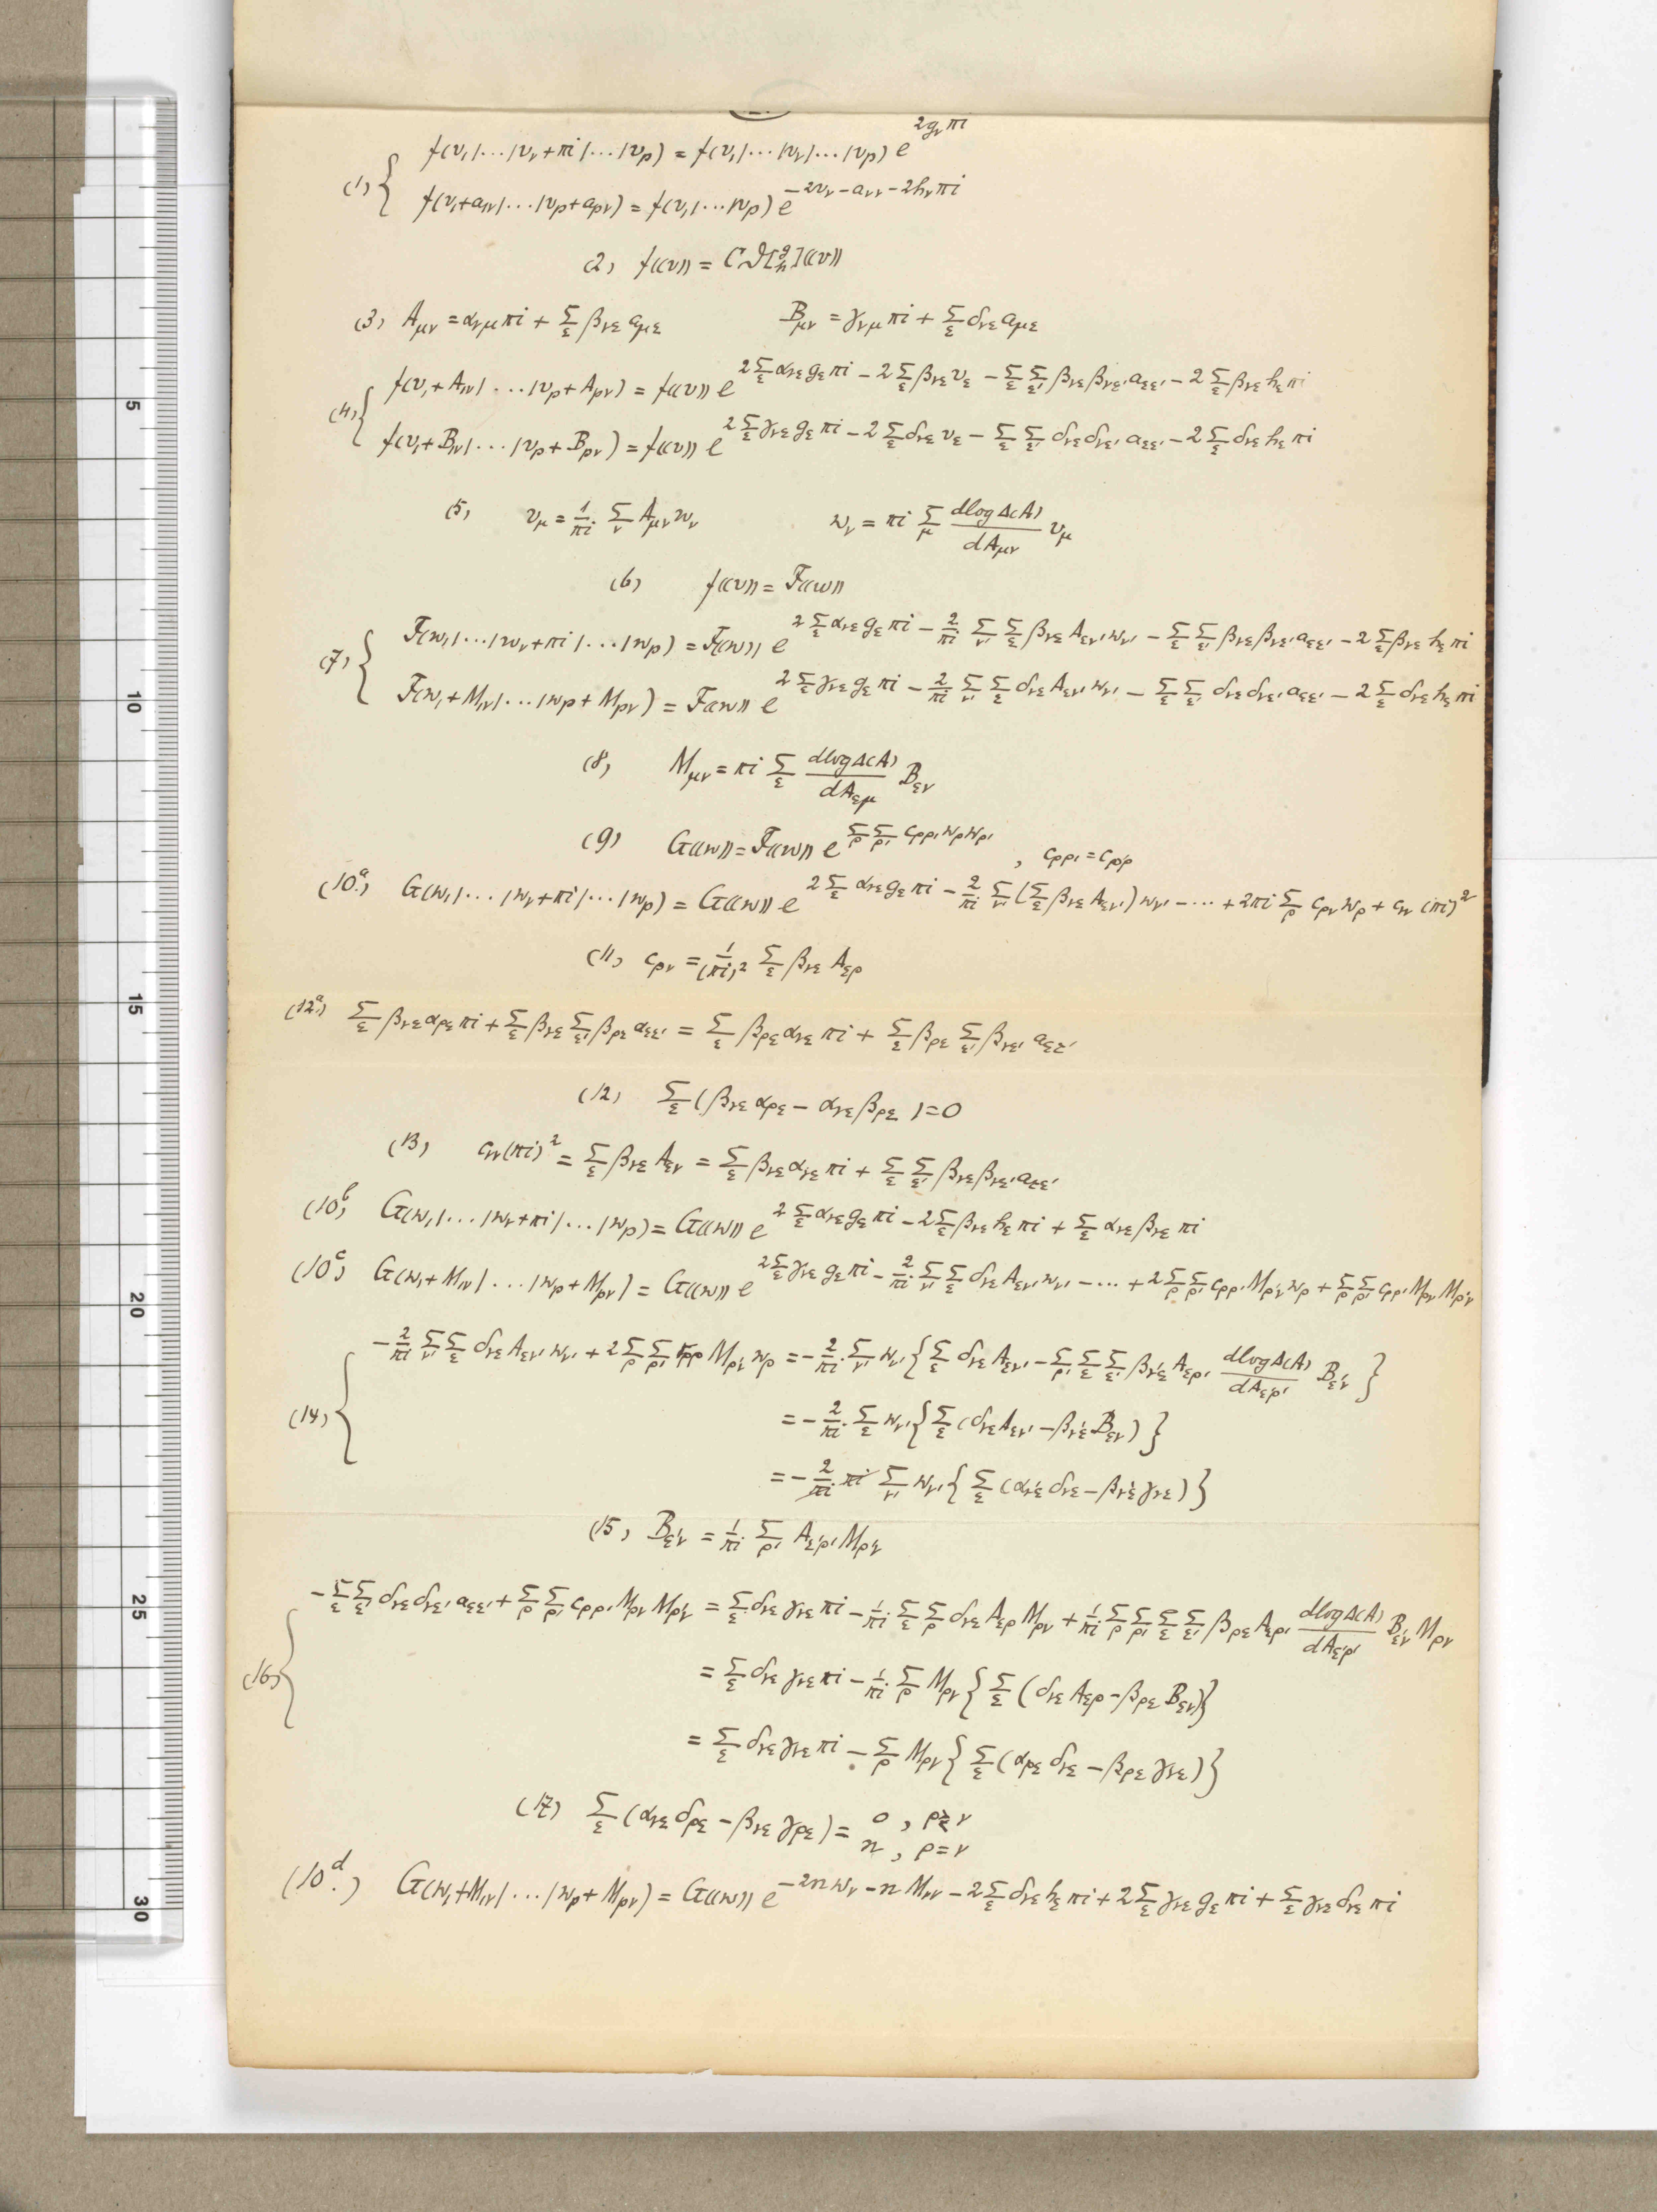 (1) { f(v₁|...|v_ν+πi|...|v_p) = f(v₁|...|v_ν|...|v_p) e^{2g_ν πi}
f(v₁+a_{1ν}|...|v_p+a_{pν}) = f(v₁|...|v_p) e^{-2v_ν - a_{νν} - 2h_ν πi}
(2) f((v)) = C ϑ[g h]((v))
(3) A_{μν} = α_{νμ} πi + Σ_ε β_{νε} a_{με} B_{μν} = γ_{νμ} πi + Σ_ε δ_{νε} a_{με}
(4) { f(v₁+A_{1ν}|...|v_p+A_{pν}) = f((v)) e^{2Σ_ε α_{νε} g_ε πi - 2Σ_ε β_{νε} v_ε - Σ_ε Σ_ε' β_{νε} β_{νε'} a_{εε'} - 2Σ_ε β_{νε} h_ε πi}
f(v₁+B_{1ν}|...|v_p+B_{pν}) = f((v)) e^{2Σ_ε γ_{νε} g_ε πi - 2Σ_ε δ_{νε} v_ε - Σ_ε Σ_ε' δ_{νε} δ_{νε'} a_{εε'} - 2Σ_ε δ_{νε} h_ε πi}
(5) v_μ = 1/πi Σ_ν A_{μν} w_ν w_ν = πi Σ_μ dlogΔ(A)/dA_{μν} v_μ
(6) f((v)) = F((w))
(7) { F(w₁|...|w_ν+πi|...|w_p) = F((w)) e^{2Σ_ε α_{νε} g_ε πi - 2/πi Σ_ν' Σ_ε β_{νε} A_{εν'} w_ν' - Σ_ε Σ_ε' β_{νε} β_{νε'} a_{εε'} - 2Σ_ε β_{νε} h_ε πi}
F(w₁+M_{1ν}|...|w_p+M_{pν}) = F((w)) e^{2Σ_ε γ_{νε} g_ε πi - 2/πi Σ_ν' Σ_ε δ_{νε} A_{εν'} w_ν' - Σ_ε Σ_ε' δ_{νε} δ_{νε'} a_{εε'} - 2Σ_ε δ_{νε} h_ε πi}
(8) M_{μν} = πi Σ_ε dlogΔ(A)/dA_{εμ} B_{εν}
(9) G((w)) = F((w)) e^{Σ_ρ Σ_ρ' c_{ρρ'} w_ρ w_ρ'} , c_{ρρ'} = c_{ρ'ρ}
(10.ᵃ) G(w₁|...|w_ν+πi|...|w_p) = G((w)) e^{2Σ_ε α_{νε} g_ε πi - 2/πi Σ_ν' (Σ_ε β_{νε} A_{εν'}) w_ν' - ... + 2πi Σ_ρ c_{ρν} w_ρ + c_{νν} (πi)²}
(11) c_{ρν} = 1/(πi)² Σ_ε β_{νε} A_{ερ}
(12.ᵃ) Σ_ε β_{νε} α_{ρε} πi + Σ_ε β_{νε} Σ_ε' β_{ρε'} a_{εε'} = Σ_ε β_{ρε} α_{νε} πi + Σ_ε β_{ρε} Σ_ε' β_{νε'} a_{εε'}
(12) Σ_ε (β_{νε} α_{ρε} - α_{νε} β_{ρε}) = 0
(13) c_{νν} (πi)² = Σ_ε β_{νε} A_{εν} = Σ_ε β_{νε} α_{νε} πi + Σ_ε Σ_ε' β_{νε} β_{νε'} a_{εε'}
(10.ᵇ) G(w₁|...|w_ν+πi|...|w_p) = G((w)) e^{2Σ_ε α_{νε} g_ε πi - 2Σ_ε β_{νε} h_ε πi + Σ_ε α_{νε} β_{νε} πi}
(10.ᶜ) G(w₁+M_{1ν}|...|w_p+M_{pν}) = G((w)) e^{2Σ_ε γ_{νε} g_ε πi - 2/πi Σ_ν' Σ_ε δ_{νε} A_{εν'} w_ν' - ... + 2Σ_ρ Σ_ρ' c_{ρρ'} M_{ρ'ν} w_ρ + Σ_ρ Σ_ρ' c_{ρρ'} M_{ρν} M_{ρ'ν}}
(14) { -2/πi Σ_ν' Σ_ε δ_{νε} A_{εν'} w_ν' + 2Σ_ρ Σ_ρ' c_{ρρ'} M_{ρ'ν} w_ρ = -2/πi Σ_ν' w_ν' {Σ_ε δ_{νε} A_{εν'} - Σ_ρ' Σ_ε Σ_ε' β_{ν'ε} A_{ερ'} dlogΔ(A)/dA_{ε'ρ'} B_{ε'ν}}
= -2/πi Σ_ε w_ν' {Σ_ε (δ_{νε} A_{εν'} - β_{ν'ε} B_{εν})}
= -2/πi πi Σ_ν' w_ν' {Σ_ε (α_{ν'ε} δ_{νε} - β_{ν'ε} γ_{νε})}
(15) B_{ε'ν} = 1/πi Σ_ρ' A_{ε'ρ'} M_{ρ'ν}
(16) { -Σ_ε Σ_ε' δ_{νε} δ_{νε'} a_{εε'} + Σ_ρ Σ_ρ' c_{ρρ'} M_{ρν} M_{ρ'ν} = Σ_ε δ_{νε} γ_{νε} πi - 1/πi Σ_ε Σ_ρ δ_{νε} A_{ερ} M_{ρν} + 1/πi Σ_ρ Σ_ρ' Σ_ε Σ_ε' β_{ρε} A_{ερ'} dlogΔ(A)/dA_{ε'ρ'} B_{ε'ν} M_{ρν}
= Σ_ε δ_{νε} γ_{νε} πi - 1/πi Σ_ρ M_{ρν} {Σ_ε (δ_{νε} A_{ερ} - β_{ρε} B_{εν})}
= Σ_ε δ_{νε} γ_{νε} πi - Σ_ρ M_{ρν} {Σ_ε (α_{ρε} δ_{νε} - β_{ρε} γ_{νε})}
(17) Σ_ε (α_{νε} δ_{ρε} - β_{νε} γ_{ρε}) = 0 , ρ≷ν
n , ρ=ν
(10.ᵈ) G(w₁+M_{1ν}|...|w_p+M_{pν}) = G((w)) e^{-2n w_ν - n M_{νν} - 2Σ_ε δ_{νε} h_ε πi + 2Σ_ε γ_{νε} g_ε πi + Σ_ε γ_{νε} δ_{νε} πi}
5
10
15
20
25
30